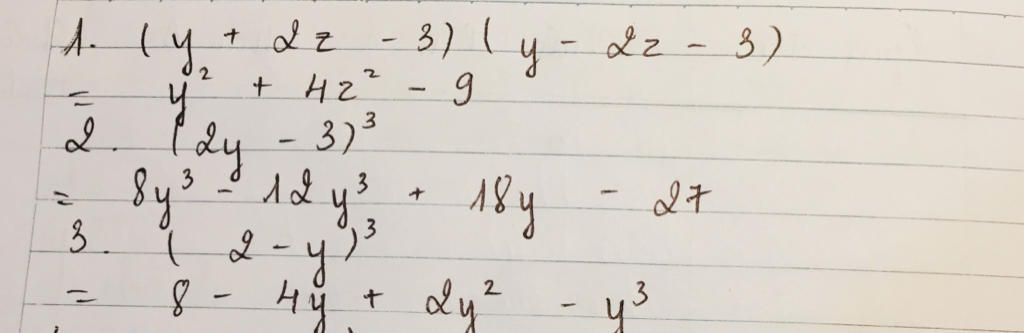 1. (y + 2z - 3) (y - 2z - 3)
= y² + 4z² - 9
2. (2y - 3)³
= 8y³ - 12y³ + 18y - 27
3. (2 - y)³
= 8 - 4y + 2y² - y³